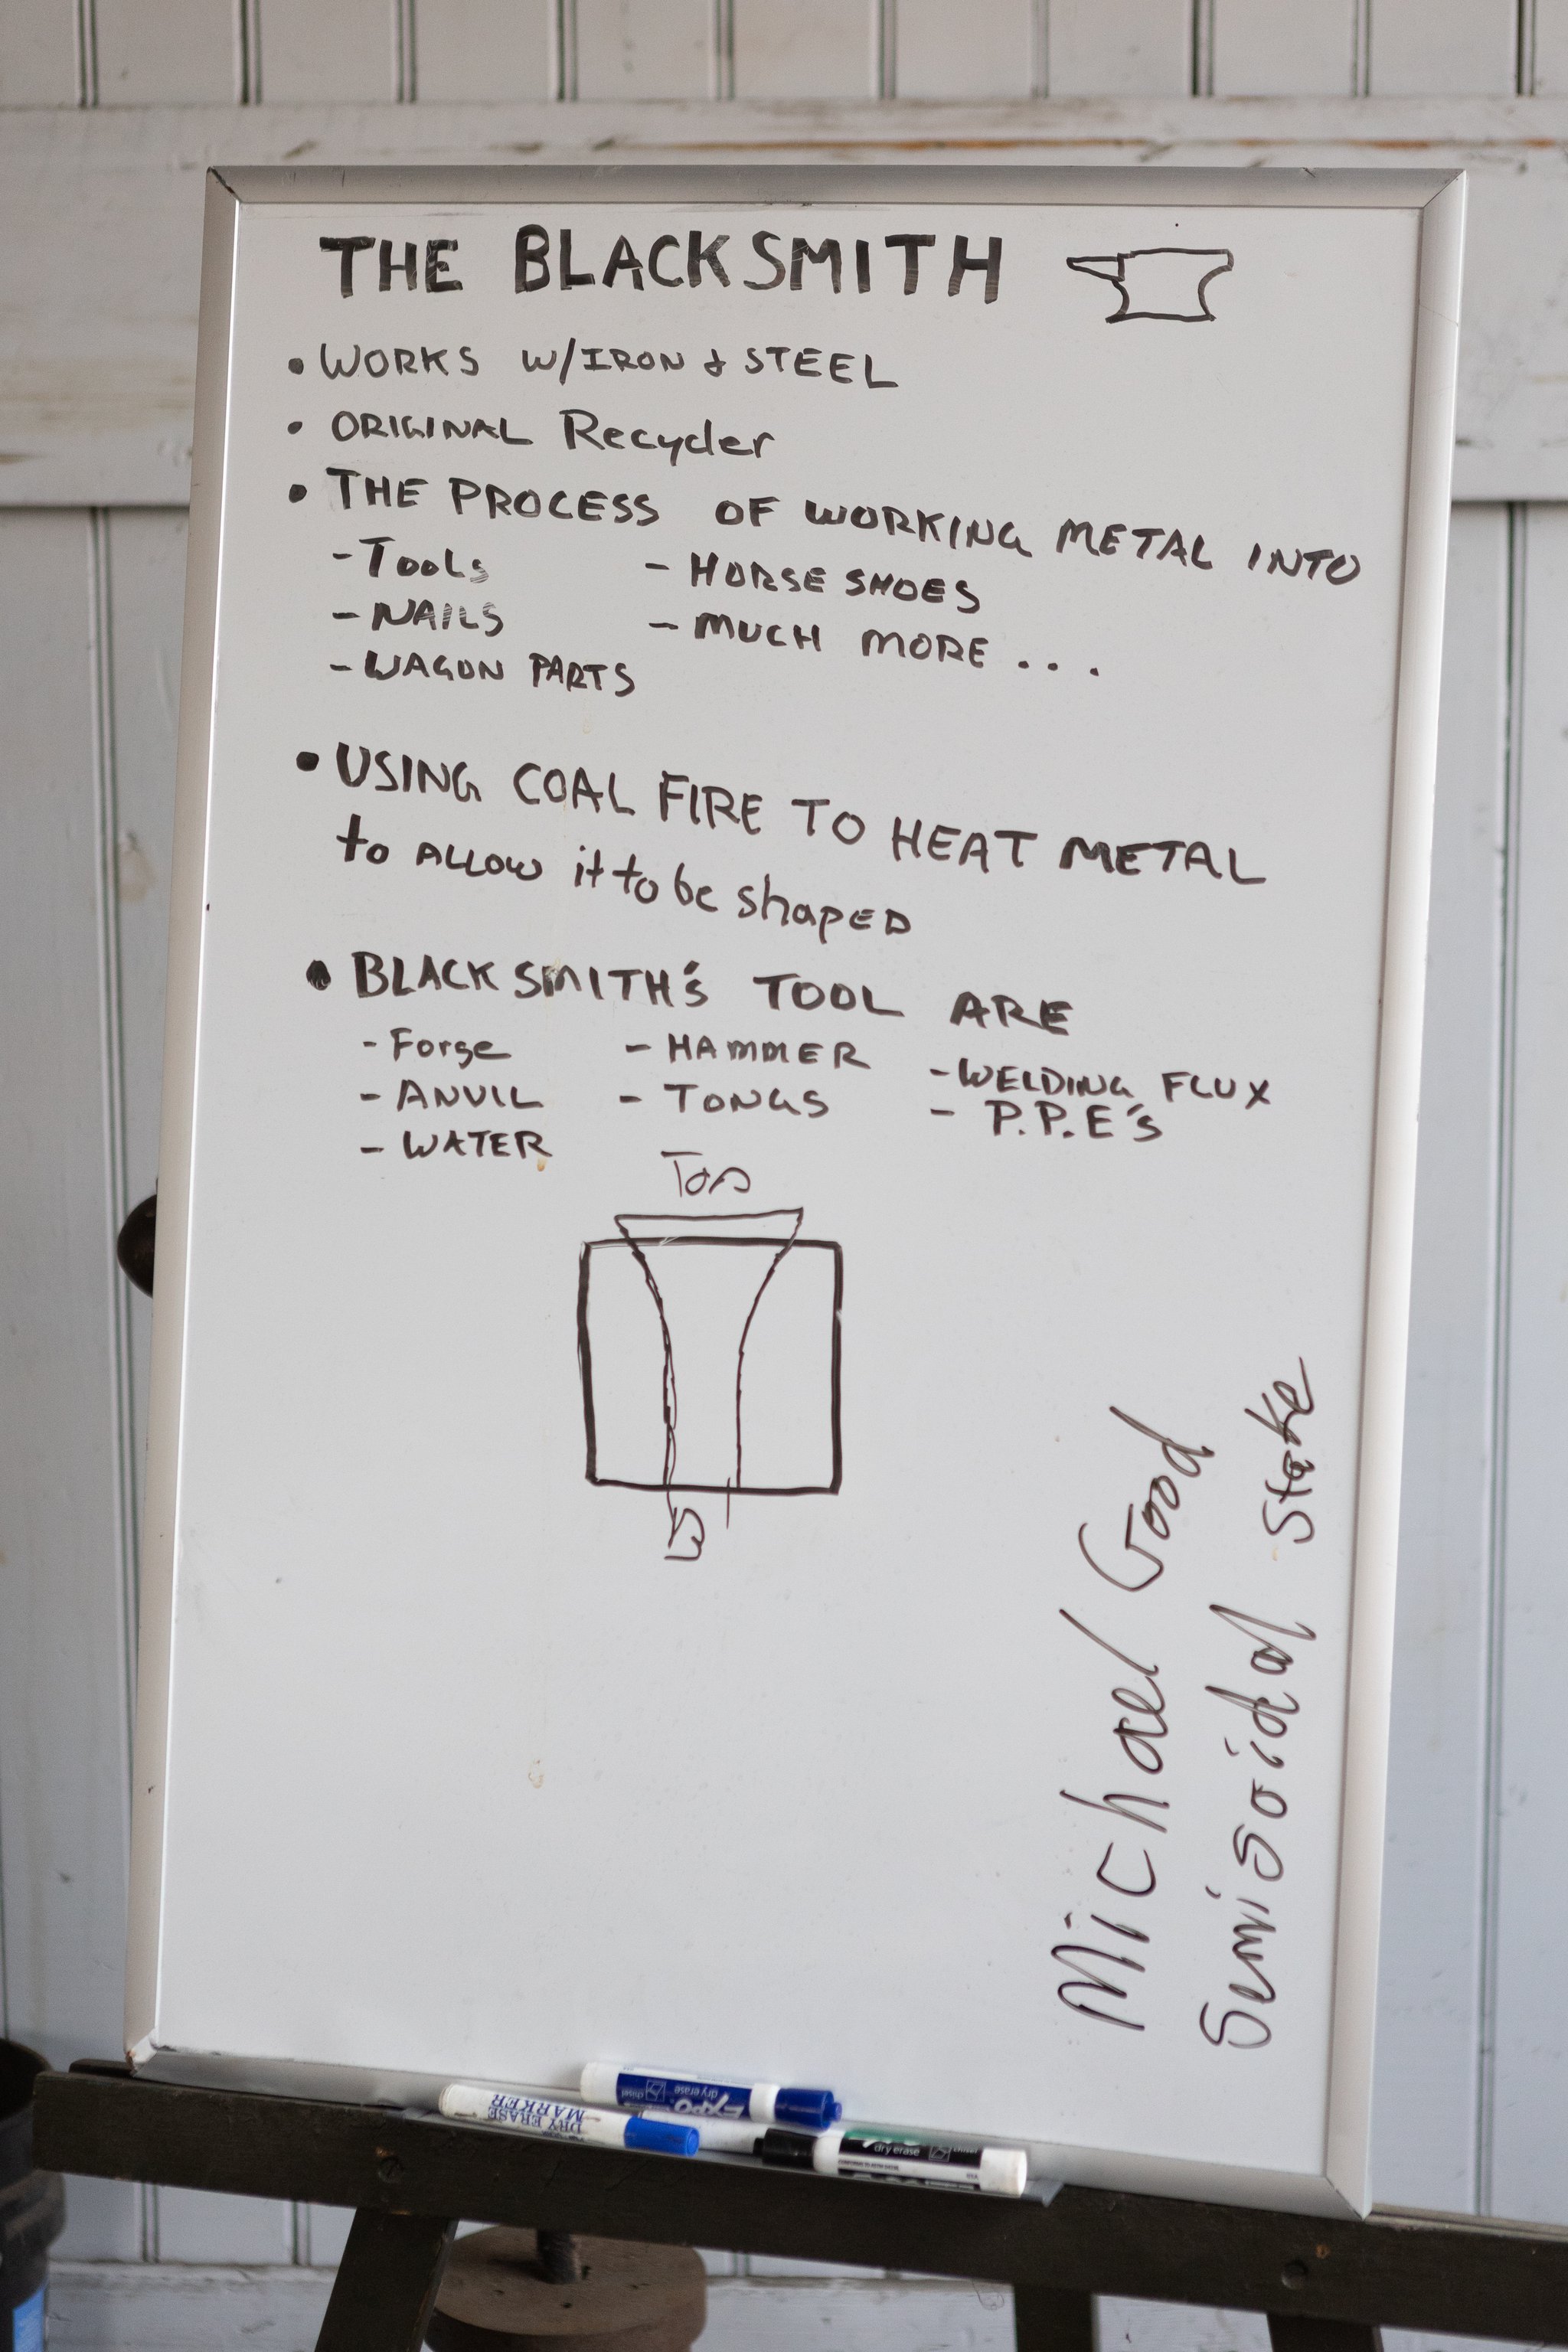 THE BLACKSMITH
• WORKS W/IRON & STEEL
• ORIGINAL Recycler
• THE PROCESS OF WORKING METAL INTO
- TOOLS - HORSE SHOES
- NAILS - MUCH MORE ...
- WAGON PARTS
• USING COAL FIRE TO HEAT METAL
to ALLOW it to be shapeD
• BLACKSMITH'S TOOL ARE
- Forge - HAMMER - WELDING FLUX
- ANVIL - TONGS - P.P.E's
- WATER
Top
Michael Good
Semisoidal Stake
EXPO
dry erase
chisel
DRY ERASE
MARKER
dry erase
chisel